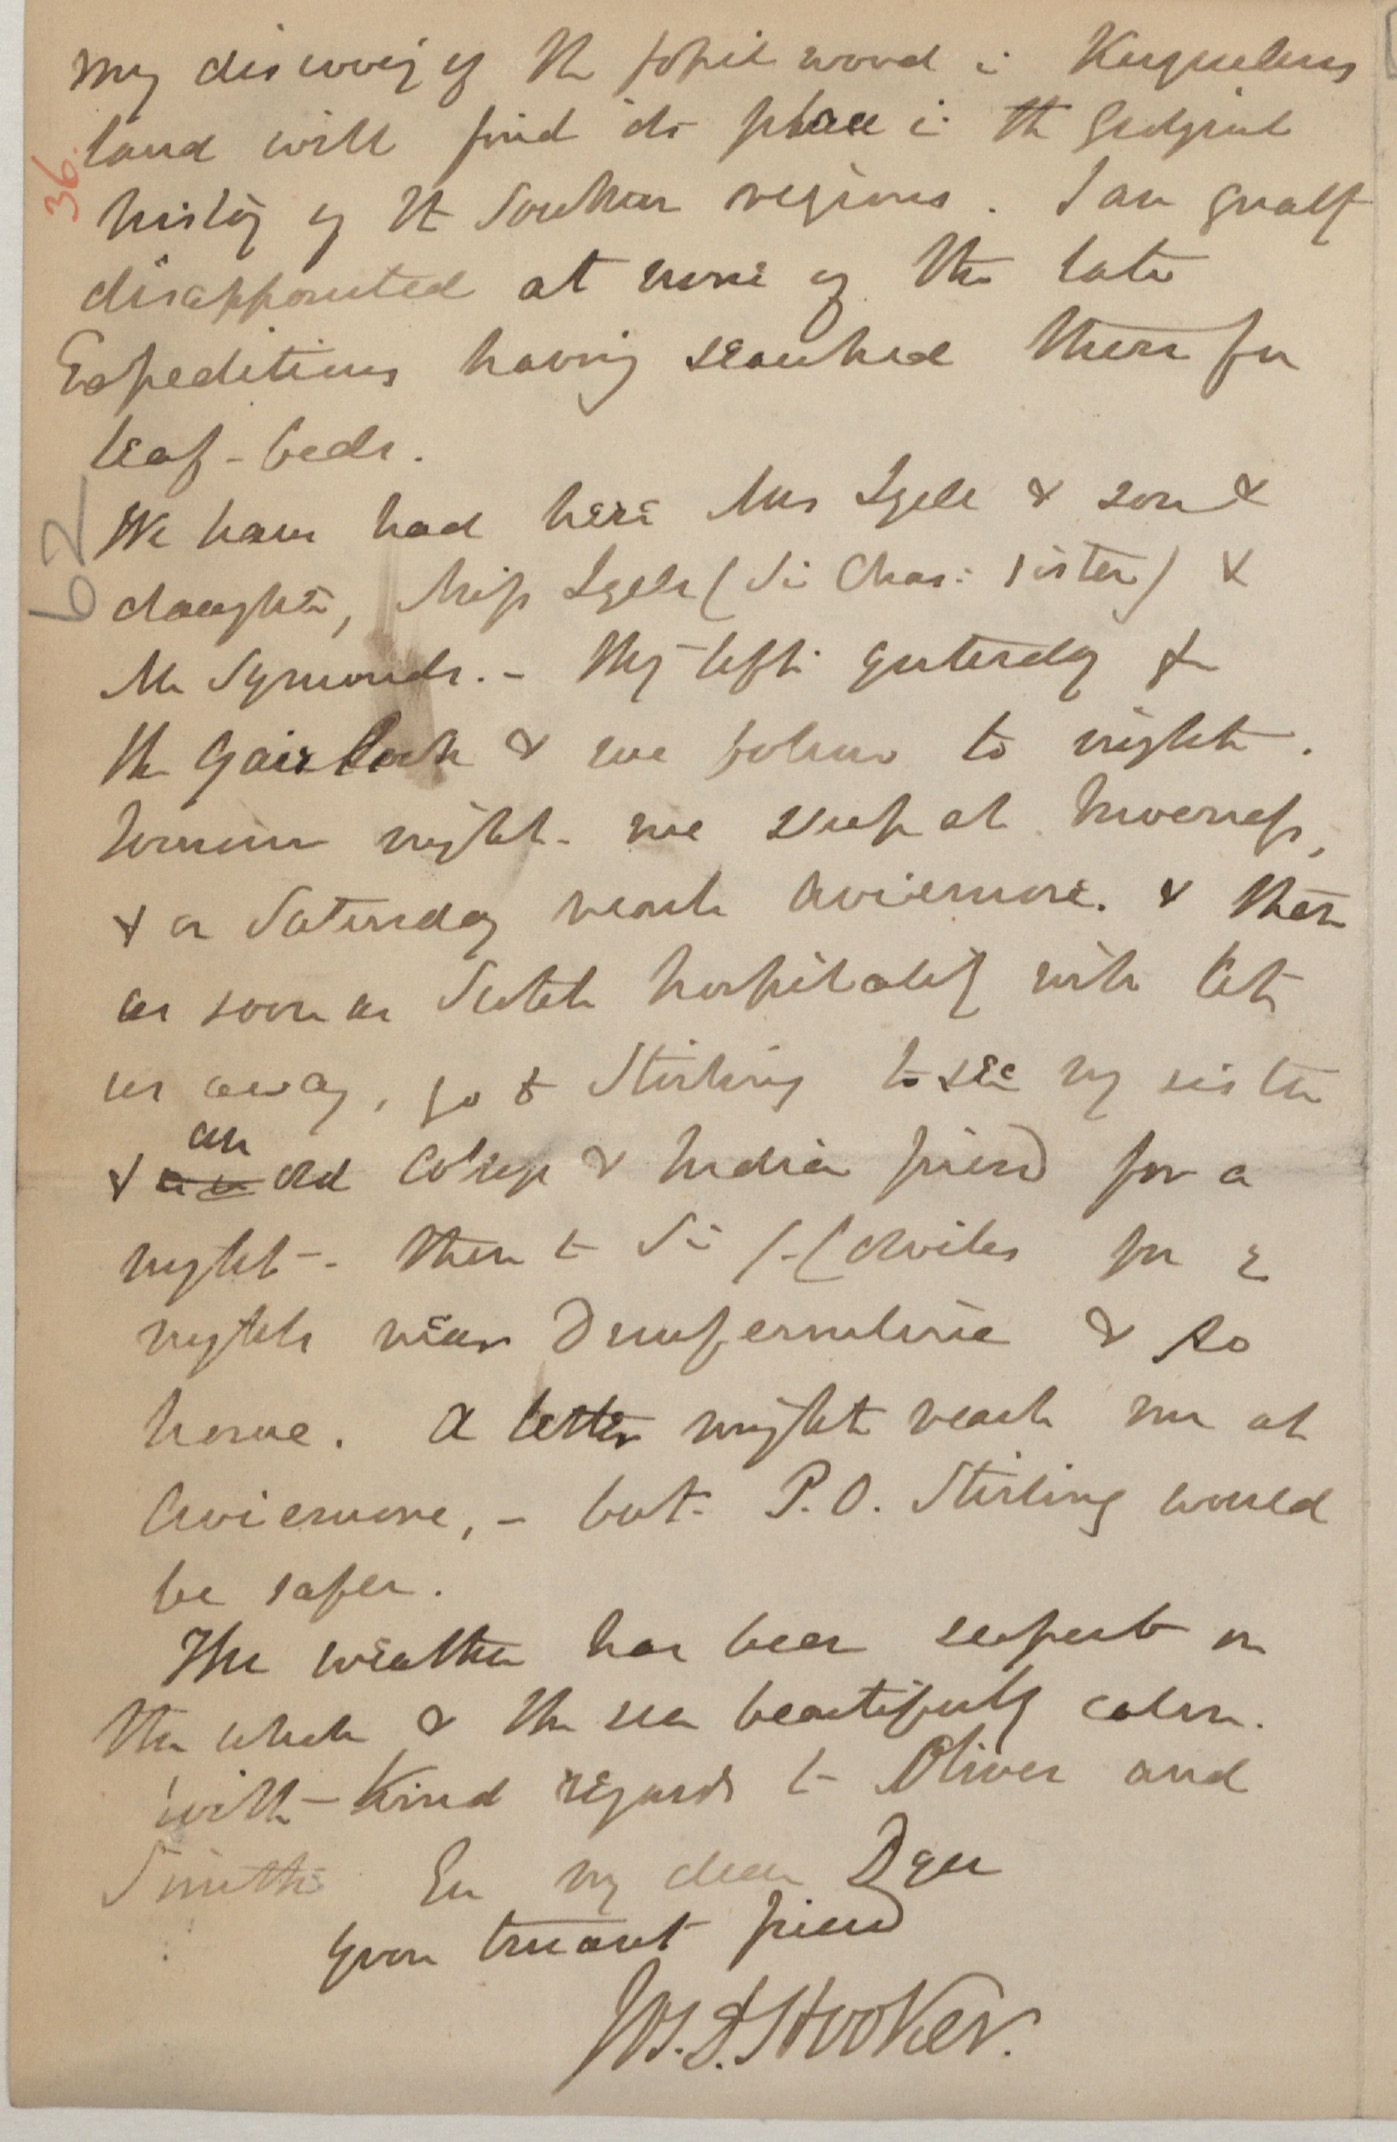 my discovery of the fossil wood in Kerguelens
land will find its place in the Geological
36.
history of the Southern regions. I am greatly
disappointed at none of the late
Expeditions having searched there for
leaf-beds.
62
We have had here Mrs Lyell & son &
daughter, Miss Lyell (Sir Chas: sister) &
Mr Symonds. - They left yesterday for
the Gairloch & we follow to night.
Tomorrow night we sleep at Inverness,
& on Saturday reach Aviemore. & then
as soon as Scotch hospitality will let
us away, go to Stirling to see my sister
& an old College & Indian friend for a
night - then to Sir J. Colviles for 2
nights near Dunfermline & so
home. A letter might reach me at
Aviemore, - but P.O. Stirling would
be safer.
The weather has been superb on
the whole & the sea beautifully calm.
With kind regards to Oliver and
Smith Ev my dear Dyer
your truant friend
Jos. D. Hooker.